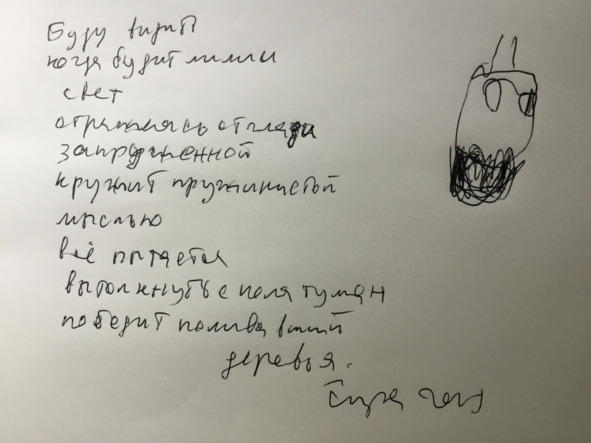 Буду видить
когда будит лилии
свет
отражаясь от глади
запруженной
кружит пружинистой
мыслью
всё пытается
вытолкнуть с поля туман
победит поливавший
деревья.